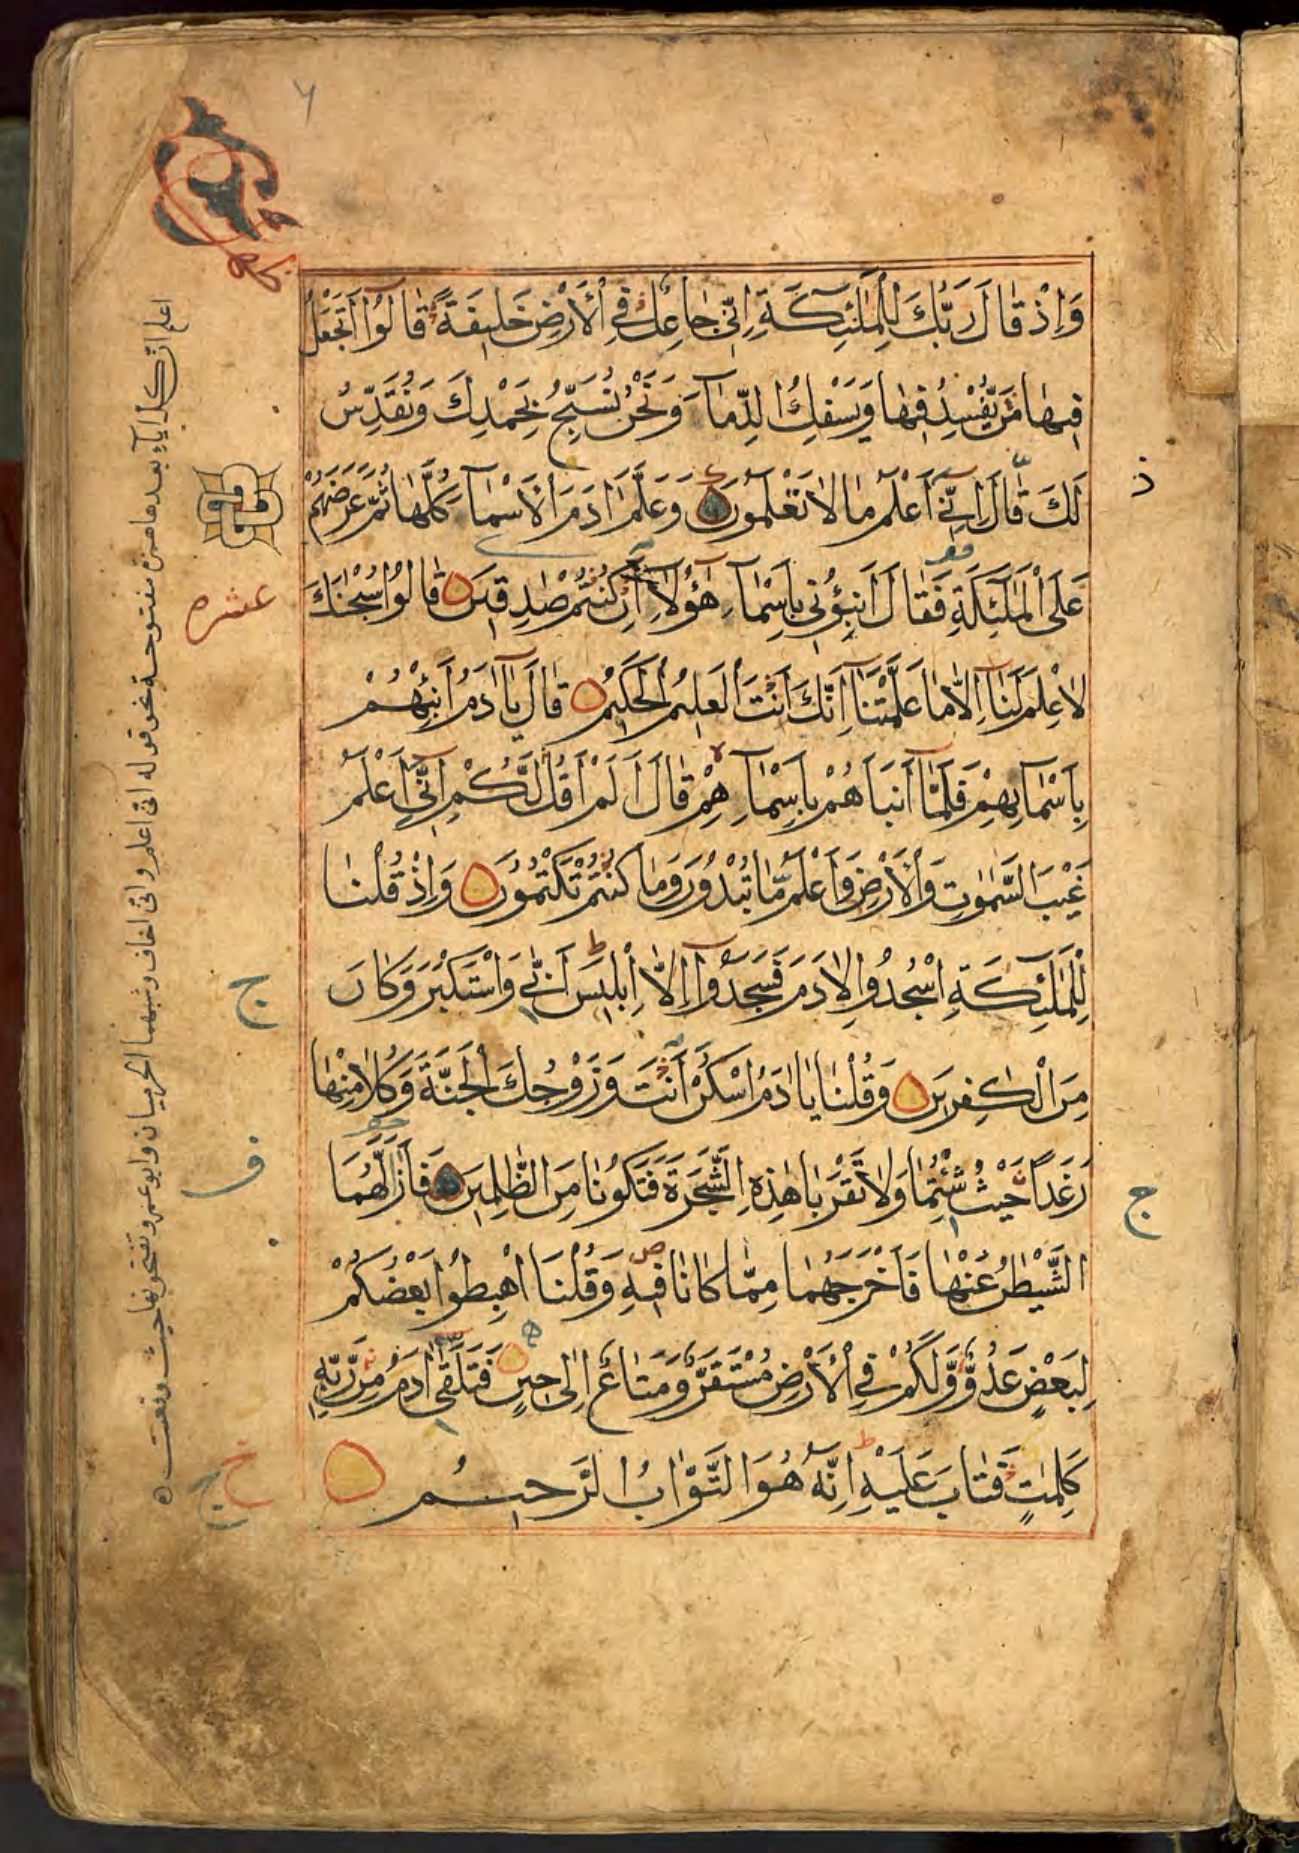 ٦
وَإِذْ قَالَ رَبُّكَ لِلْمَلٰئِكَةِ اِنِّي جَاعِلٌ فِي الْأَرْضِ خَلِيفَةً قَالُوا أَتَجْعَلُ
فِيهَا مَن يُّفْسِدُ فِيهَا وَيَسْفِكُ الدِّمَآءَ وَنَحْنُ نُسَبِّحُ بِحَمْدِكَ وَنُقَدِّسُ
لَكَ قَالَ اِنِّي أَعْلَمُ مَا لَا تَعْلَمُونَ وَعَلَّمَ اٰدَمَ الْأَسْمَآءَ كُلَّهَا ثُمَّ عَرَضَهُمْ
عَلَى الْمَلٰئِكَةِ فَقَالَ أَنْبِؤُنِي بِأَسْمَآءِ هٰؤُلَآءِ اِنْ كُنْتُمْ صٰدِقِينَ قَالُوا سُبْحٰنَكَ
لَا عِلْمَ لَنَا اِلَّا مَا عَلَّمْتَنَا اِنَّكَ أَنْتَ الْعَلِيمُ الْحَكِيمُ قَالَ يَا اٰدَمُ أَنْبِئْهُمْ
بِأَسْمَآئِهِمْ فَلَمَّا أَنْبَأَهُمْ بِأَسْمَآءِهِمْ قَالَ أَلَمْ أَقُلْ لَّكُمْ اِنِّي أَعْلَمُ
غَيْبَ السَّمٰوٰتِ وَالْأَرْضِ وَأَعْلَمُ مَا تُبْدُونَ وَمَا كُنْتُمْ تَكْتُمُونَ وَإِذْ قُلْنَا
لِلْمَلٰئِكَةِ اسْجُدُوا لِاٰدَمَ فَسَجَدُوا اِلَّا اِبْلِيسَ أَبٰى وَاسْتَكْبَرَ وَكَانَ
مِنَ الْكٰفِرِينَ وَقُلْنَا يَا اٰدَمُ اسْكُنْ أَنْتَ وَزَوْجُكَ الْجَنَّةَ وَكُلَا مِنْهَا
رَغَدًا حَيْثُ شِئْتُمَا وَلَا تَقْرَبَا هٰذِهِ الشَّجَرَةَ فَتَكُونَا مِنَ الظّٰلِمِينَ فَأَزَلَّهُمَا
الشَّيْطٰنُ عَنْهَا فَأَخْرَجَهُمَا مِمَّا كَانَا فِيهِ وَقُلْنَا اهْبِطُوا بَعْضُكُمْ
لِبَعْضٍ عَدُوٌّ وَّلَكُمْ فِي الْأَرْضِ مُسْتَقَرٌّ وَّمَتَاعٌ اِلٰى حِينٍ فَتَلَقّٰى اٰدَمُ مِنْ رَّبِّهِ
كَلِمٰتٍ فَتَابَ عَلَيْهِ اِنَّهُ هُوَ التَّوَّابُ الرَّحِيمُ
عشره
ج
ف
ج
اعلم ان كل ياء بعدها همزة مفتوحة نحو قوله اني اعلم واني اخاف وشبههما الحرميان وابو عمرو تفتحونها حيث وقعت